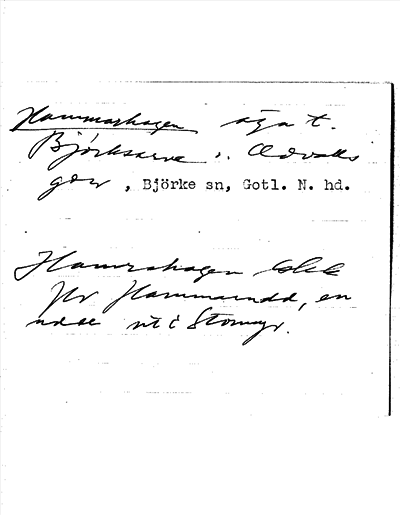 Hammarhagen äga t.
Björksarve
gdn, Björke sn, Gotl. N. hd.
Hamrahagen
för Hammarudd, en
udde ut i Stormyr.